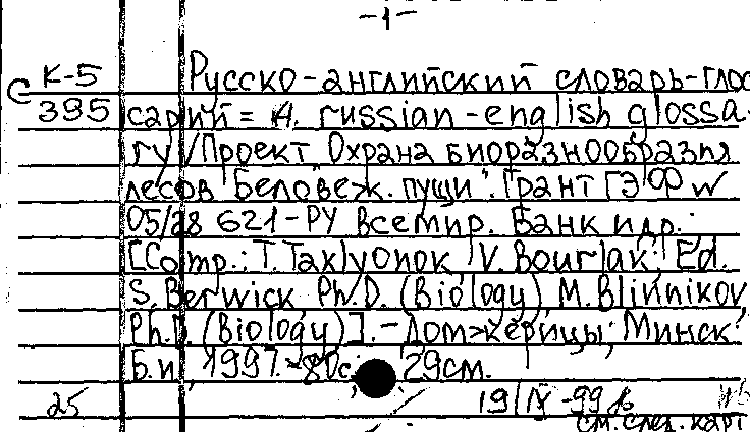 -1-
К-5 Русско-английский словарь-глос
С 395 сарий = A. russian-english glossa-
ry / Проект Охрана биоразнообразия
лесов Беловеж. пущи". Грант ГЭФ №
05/28 621-РУ Всемир. Банк и др.:
[Comp.: T. Taxlyonok, V. Bourlak; Ed.
S. Berwick Ph.D. (Biology) M. Blinnikov
Ph.D. (Biology)].-Домжерицы; Минск:
Б.и, 1997.-80с. 29см.
25 19/IV-99
см. след. карт